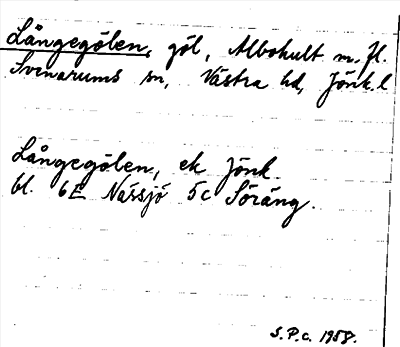 Långegölen, göl, Allohult m. fl.
Svenarums sn, Västra hd, Jönk. l
Långegölen, ek Jönk.
bl. 6E Nässjö 5c Söräng.
S.P.C. 1958.